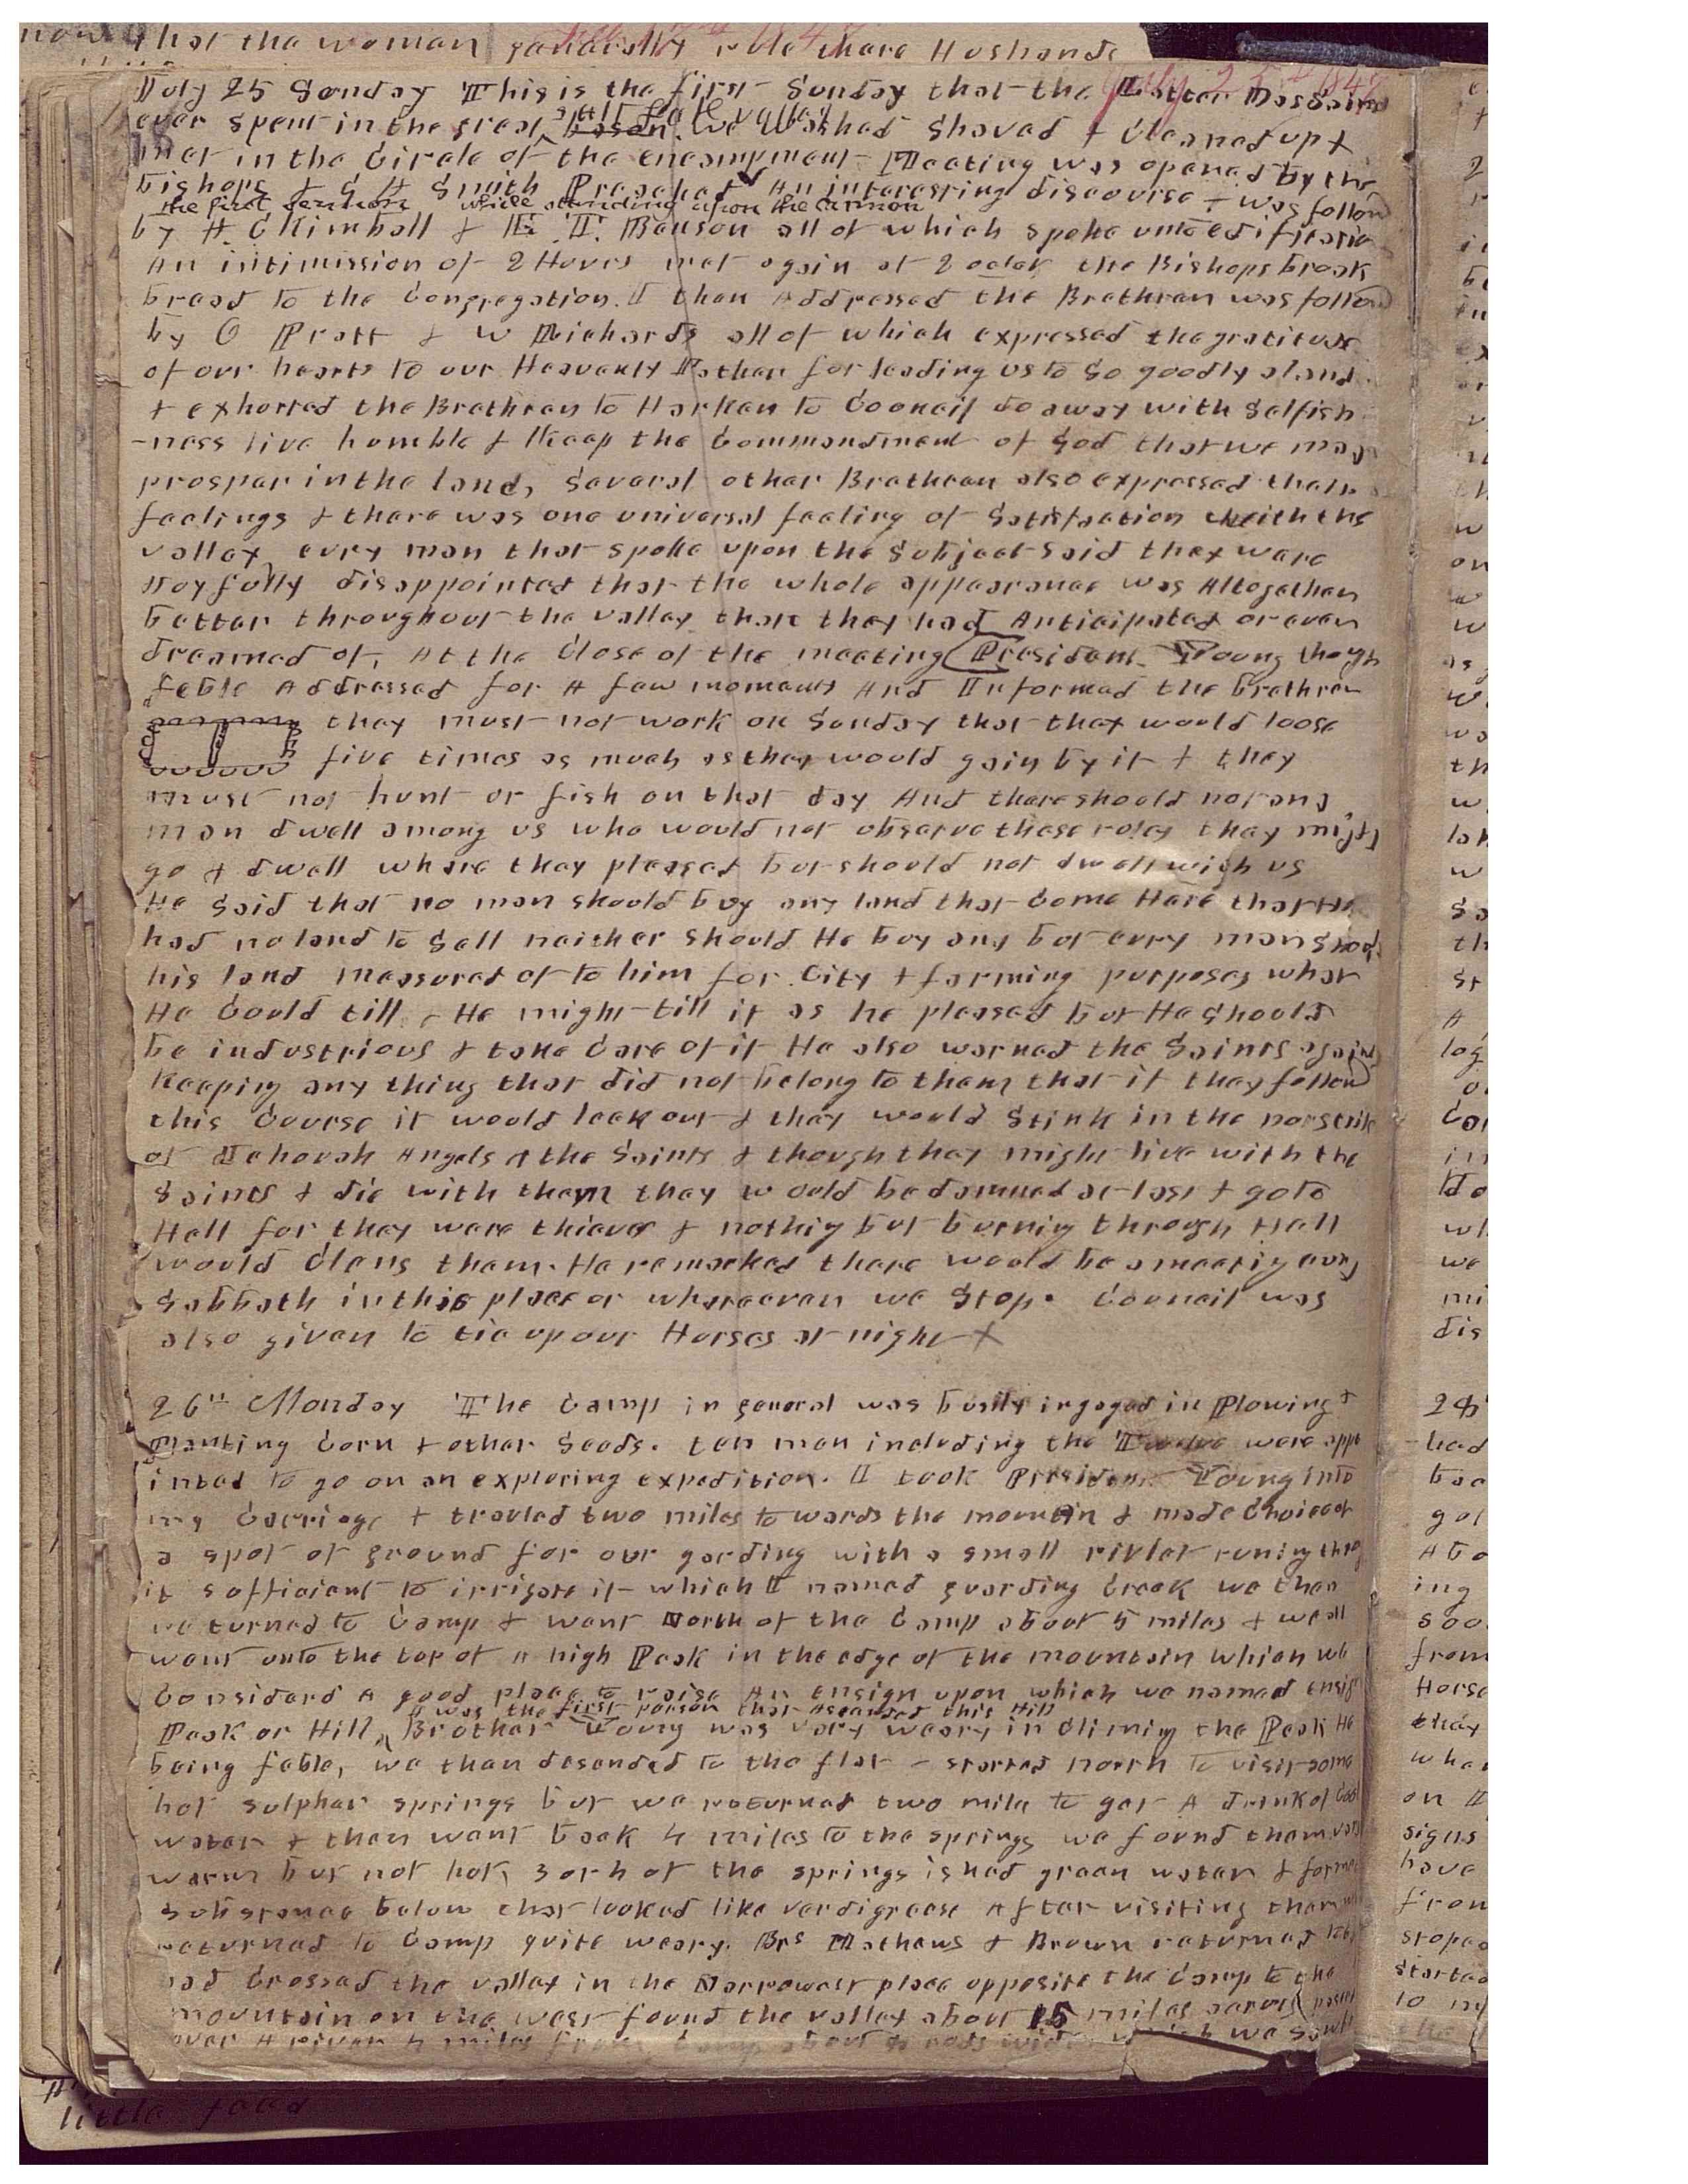 that the woman generally rule thare Husbands
July 25 1847
July 25 Sunday This is the first Sunday that the Latter Day Saints
ever spent in the great Salt Lake valley bason. We washed shaved & Cleaned up &
met in the Circle of the encampment Meeting was opened by the
bishops & G A Smith Preached An interesting discourse & was follow
the first sermon while standing upon the cannon
by H. C Kimball & E. T. Benson all of which spoke unto edificatio
An intimission of 2 Hours met again at 2 oclok the Bishops broak
bread to the Congregation. I then Addressed the Brethren was follow
by O Pratt & W Richards all of which expressed the gratitude
of our hearts to our Heavenly Father for leading us to so goodly a land
& exhorted the Brethren to Harken to Council do away with selfish
-ness live humble & Keep the Commandment of God that we may
prosper in the land, Several other Brethren also expressed their
feelings & there was one universal feeling of satisfaction with the
valley evry man that spoke upon the subject said they ware
Joyfully disappointed that the whole appearance was Altogether
better throughout the valley than they had Anticipated or even
dreamed of, At the Close of the meeting President Young though
feble Addressed for A few moments And Informed the brethren
they must not work on Sunday that they would loose
five times as much as they would gain by it & they
must not hunt or fish on that day And there should not any
man dwell among us who would not observe these rules they might
go & dwell where they pleased but should not dwell with us
He said that no man should buy any land that Come Here that He
had no land to sell neither should He buy any but evry man should
his land measured of to him for City & farming purposes what
He Could till. He might till it as he pleased but He should
be industrious & take Care of it He also warned the Saints against
keeping any thing that did not belong to them that if they follow
this Course it would leak out & they would stink in the norstrils
of Jehovah Angels & the Saints & though they might live with the
Saints & die with them they would be damned at last & go to
Hell for they ware thieves & nothig but burnig through Hell
would Clens them. He remarked there would be a meetig evry
Sabbath in this place or whareever we stop. Council was
also given to tie up our Horses at night X
26th Monday The Camp in general was busily ingaged in Plowing &
Planting Corn & other seeds. ten men including the Twelve were appo
inted to go on an exploring expedition. I took President Young into
my Carriage & traveled two miles towards the mountain & made Choice of
a spot of ground for our garding with a small rivlet runing throug
it sufficient to irrigate it which I named guarding Creek we then
returned to Camp & went North of the Camp about 5 miles & we all
went onto the top of A high Peak in the edge of the mountain which we
Considerd A good place to raise An ensign upon which we named ensign
I was the first person that Ascended this Hill
Peak or Hill, Brother Young was very weary in Climing the Peak He
being feble, we then desended to the flat - started north to visit some
hot sulpher springs but we returned two mile to get A drink of Cool
water & then went back 4 miles to the springs we found them very
warm but not hot, 3 or 4 of the springs ishued green water & formed
substance below that looked like verdigreese After visiting them we
returned to Camp quite weary. Brs Mathews & Brown returned
had Crossed the valley in the Narrowest place opposite the Camp to the
mountain on the west found the valley about 15 miles
over A river 4 miles from Camp about rods wide we
little food